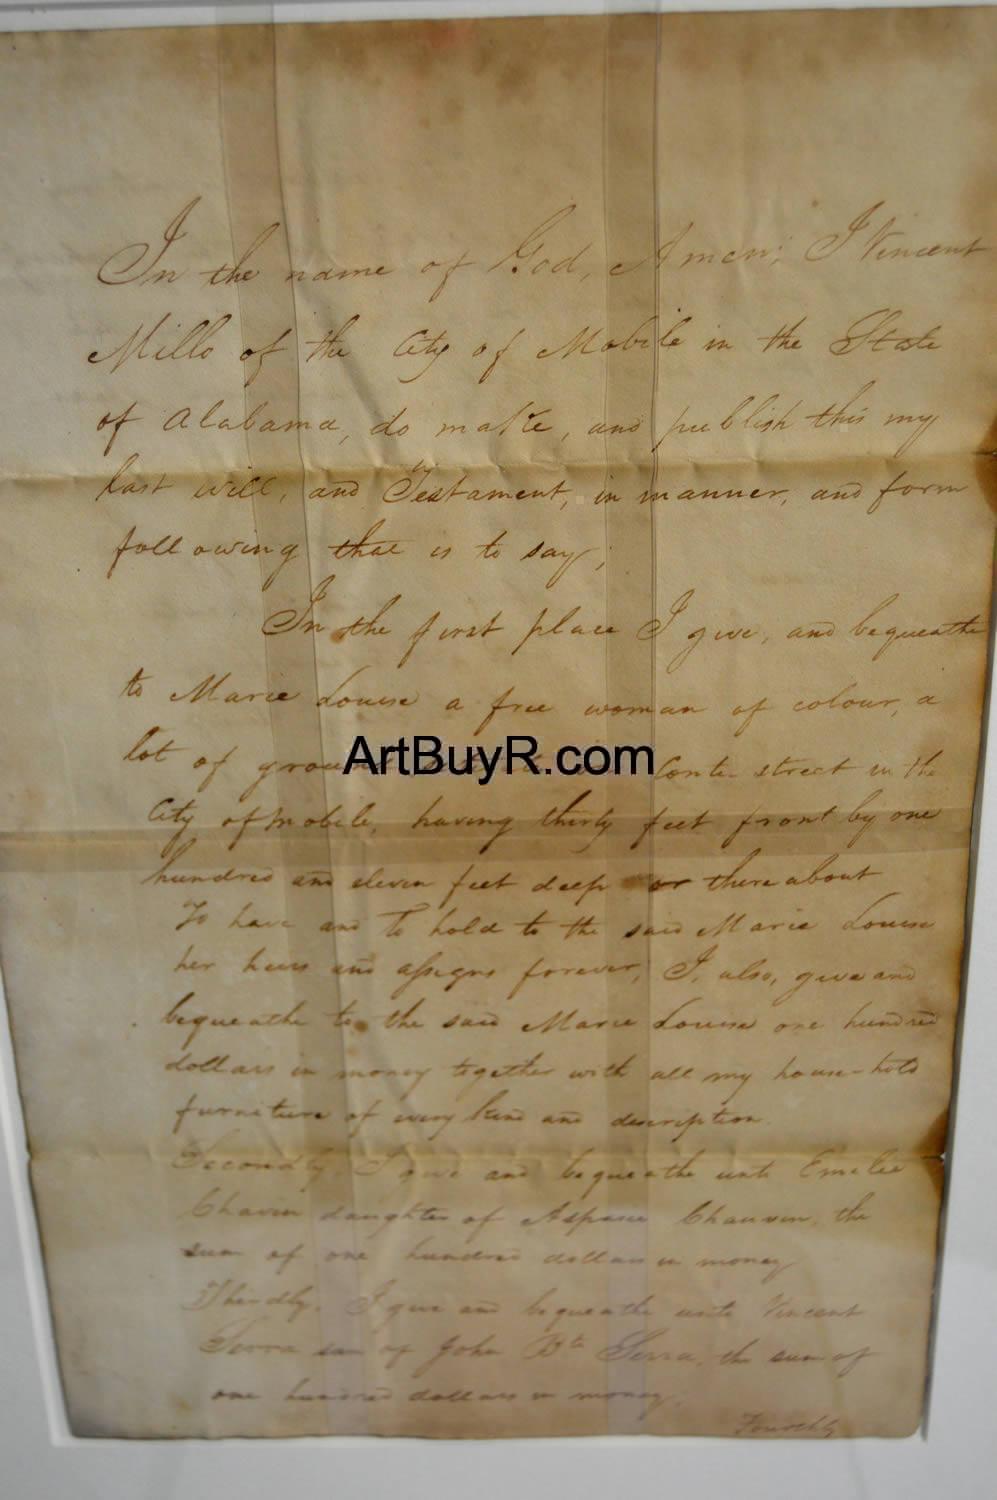 In the name of God, Amen; I Vincent
Millo of the City of Mobile in the State
of Alabama, do make, and publish this my
last will, and Testament, in manner, and form
following that is to say;
In the first place I give, and bequeathe
to Marie Louise a free woman of colour, a
lot of ground Conte street in the
ArtBuyR.com
City of Mobile, having thirty feet front by one
hundred and eleven feet deep or there about
To have and To hold to the said Marie Louise
her heirs and assigns forever, I, also, give and
bequeathe to the said Marie Louise one hundred
dollars in money together with all my house-hold
furniture of every kind and description.
Secondly. I give and bequeathe unto Emelie
Chavin daughter of Aspasie Chauvin, the
sum of one hundred dollars in money
Thirdly. I give and bequeathe unto Vincent
Serra son of John Bte Serra, the sum of
one hundred dollars in money.
Fourthly